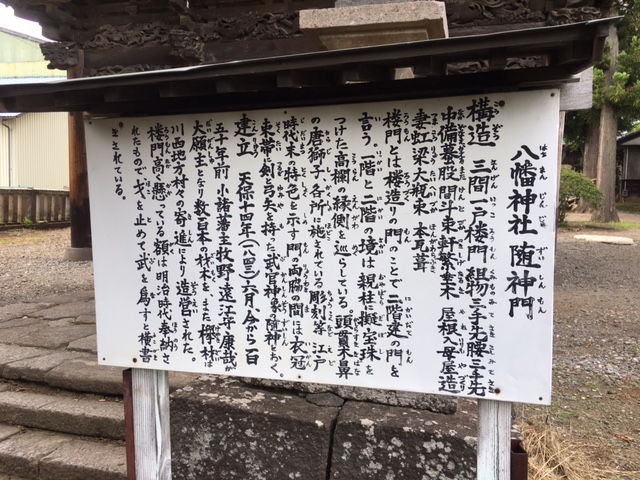 八幡神社 随神門
構造 三間一戸楼門 組物三手先腰三手先
中備蟇股間斗束軒繁垂木 屋根入母屋造
妻虹梁大瓶束 本瓦葺
楼門とは楼造りの門のことで二階建の門を
言う。一階と二階の境は親柱に擬宝珠を
つけた高欄の縁側を巡らしている。頭貫木鼻
の唐獅子各所に施されている彫刻等 江戸
時代末の特色を示す門の両脇の間には衣冠
束帯に剣弓矢を持った武官神象・随神をおく。
建立 天保十四年(一八四三)六月、今から一百
五十年前 小諸藩主牧野遠江守康哉が
大願主となり 数百本の伐木を、また欅材は
川西地方村々の寄進により造営された。
楼門高く懸っている額は明治時代奉納さ
れたもので戈を止めて武を為すと横書
きされている。